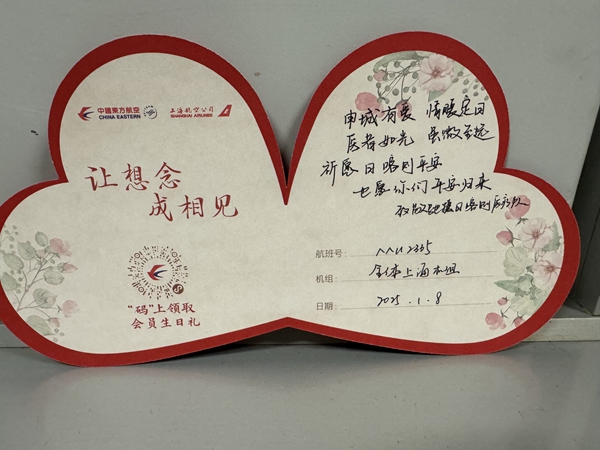 中國東方航空
CHINA EASTERN
上海航空公司
SHANGHAI AIRLINES
让想念
成相见
"码"上领取
会员生日礼
申城有爱 情暖定日
医者如光 虽微至远
祈愿日喀则平安
也愿你们平安归来
致敬驰援日喀则医疗队
航班号: MU2335
机组: 全体上海机组
日期: 2025.1.8